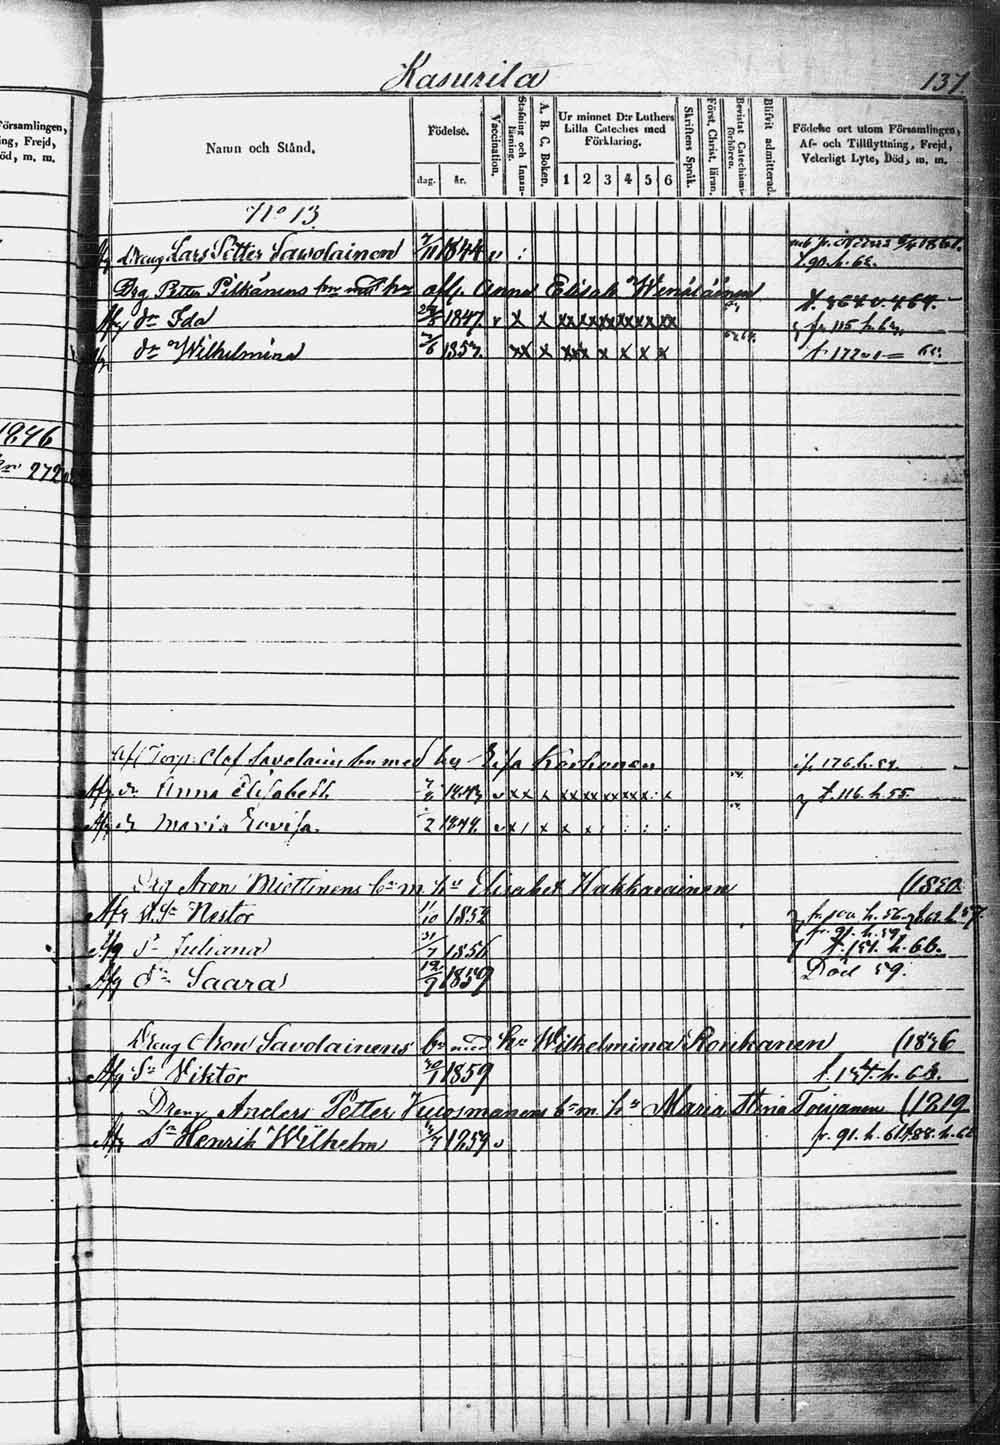 Kasurila
137
Församlingen,
ing, Frejd,
öd, m. m.
Namn och Stånd.
Födelse.
dag. år.
Vaccination.
Stafning och Innan-läsning.
A. B. C. Boken.
Ur minnet D:r Luthers Lilla Cateches med Förklaring.
1 2 3 4 5 6
Skriftens Språk.
Först. Christ. läran.
Bevistat Catechismi-förhören.
Blifvit admitterad.
Födelse ort utom Församlingen, Af- och Tillflyttning, Frejd, Veterligt Lyte, Död, m. m.
No 13.
Afg Dreng Lars Petter Sawolainen 7/11 1844 v
f. 90. h. 62.
Drg Petter Pitkänens bn med hu afl. Anna Elisab Wenäläinen
Afg dr Ida 1847 v x x xx xx xx xx xx xx
fr 115 h. 62
dr Wilhelmina 1853. xx x x x x x
1846
272
Af Torp. Olof Savolains bn med hu Lisa Korhonen
176. h. 57.
Afg dr Anna Elisabeth 1843 v xx x xx xx xx xx x : x
f. 116. h. 55.
Afg dr Maria Lovisa. 1848. v x / x x x : : : :
Drg Aron Miettinens bn m. hu Elisabet Hakkarainen (1830
Afg Sn Nestor 11/10 1852
Afg dr Juliana 31/7 1856
fr. 91. h. 59
f. 151. h. 66.
Afg dr Saara 12/9 1859
Död 59.
Dreng Aron Savolainens bn med hu Wilhelmina Ronkanen (1836
Afg Sn Viktor 20/1 1859
Dreng Anders Petter Kuosmanens bn m. hu Maria Stina Toivanen (1819
Afg Sn Henrik Wilhelm 1859 v
fr. 91. h. 61 f. 88. h. 62